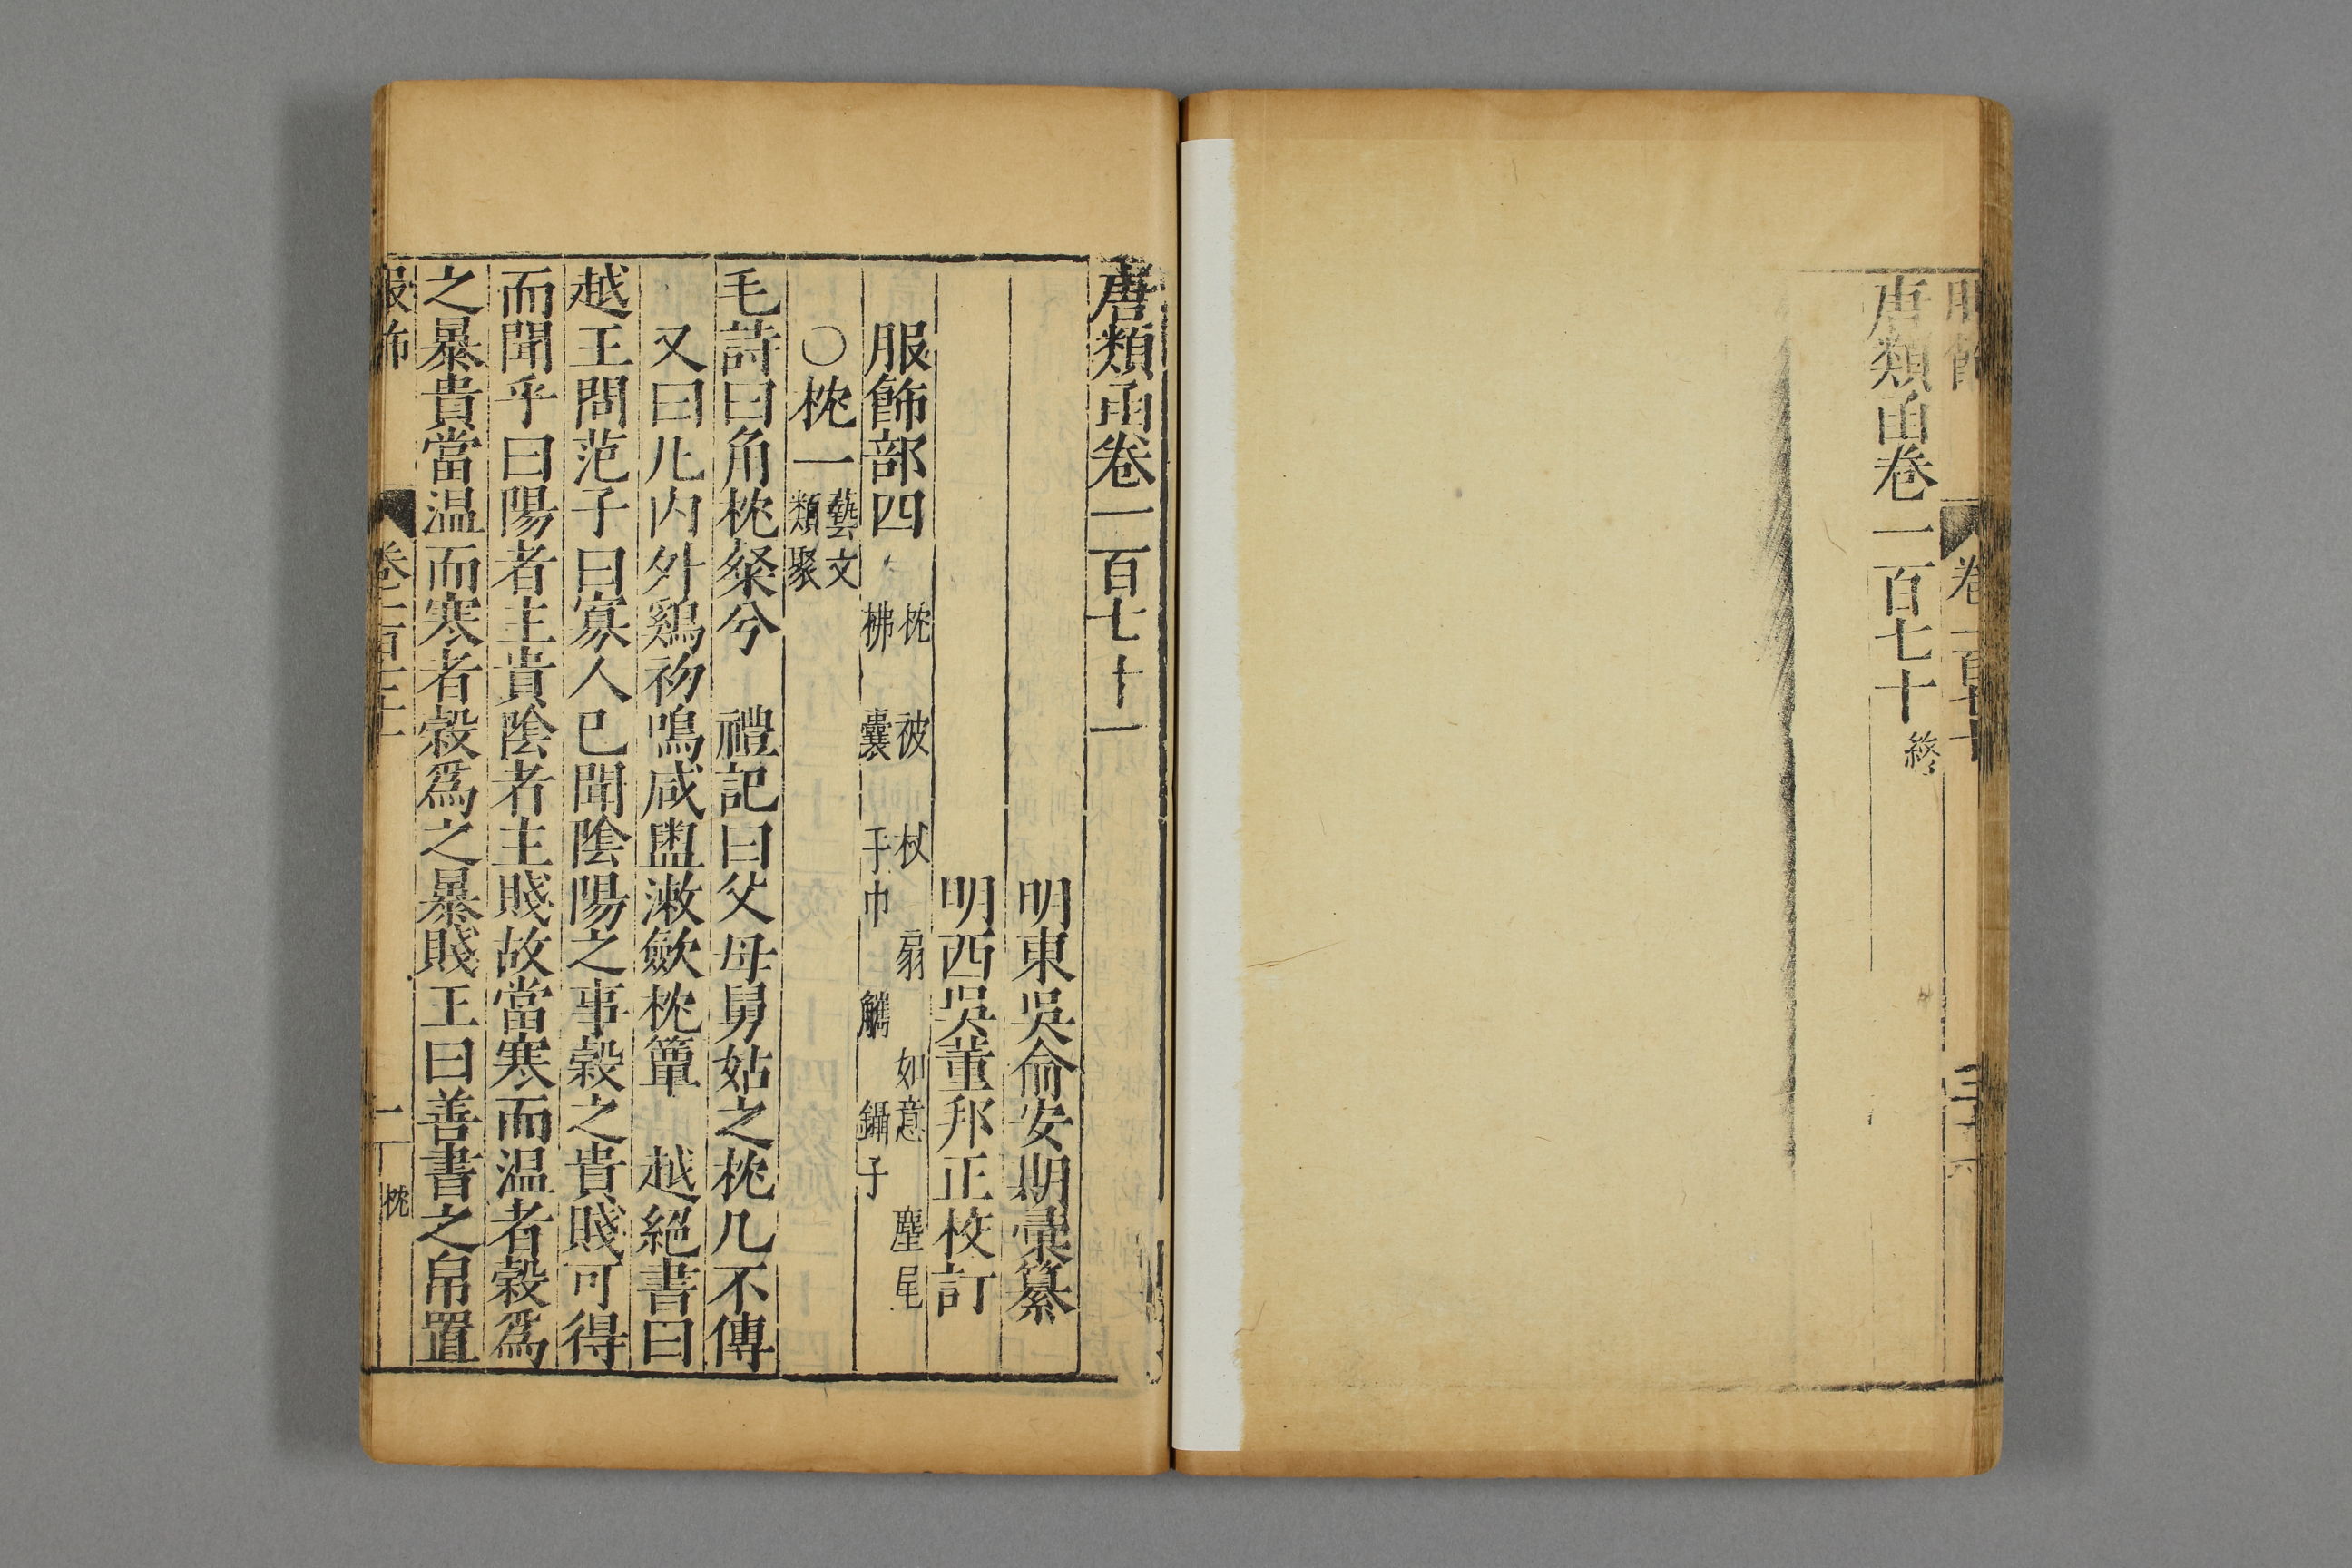 服飾
卷一百七十
唐類函卷一百七十終
唐類函卷一百七十一
明東吳俞安期彙纂
明西吳董邦正校訂
服飾部四
枕 被 杖 扇 如意 麈尾
梻 囊 手巾 觿 鑷子
〇枕一藝文類聚
毛詩曰角枕粲兮 禮記曰父母舅姑之枕几不傳
又曰凡內外鷄初鳴咸盥漱斂枕簟 越絕書曰
越王問范子曰寡人已聞陰陽之事穀之貴賤可得
而聞乎曰陽者主貴陰者主賤故當寒而温者穀爲
之暴貴當温而寒者穀爲之暴賤王曰善書之帛置
服飾
卷一百七十一
一
枕